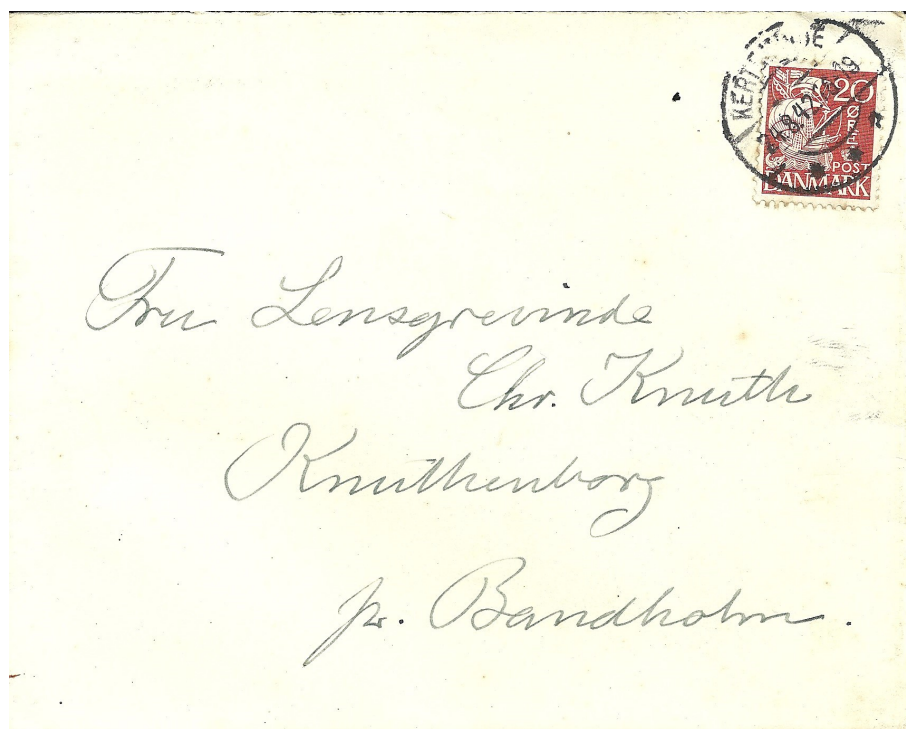 KERTEMINDE
20
ØRE
POST
DANMARK
Fru Lensgrevinde
Chr. Knuth
Knuthenborg
pr. Bandholm.